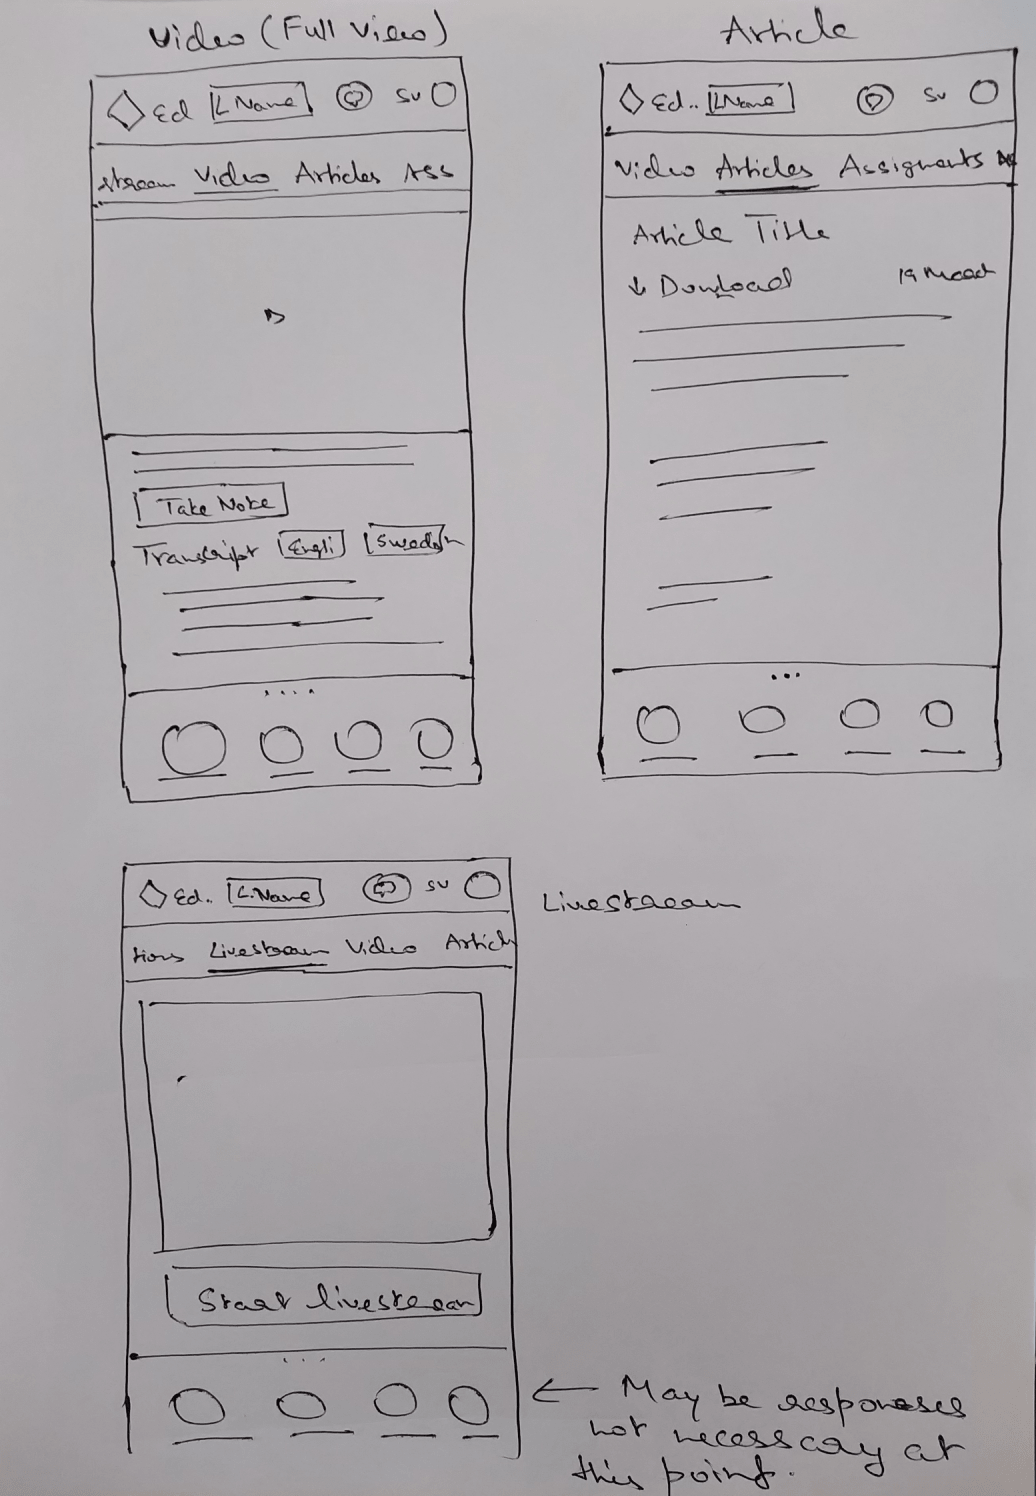 Video (Full View)
Ed L Name SV
stream Video Articles Ass
Take Note
Transcript Engli Swedish
Article
Ed.. LName SV
Video Articles Assignments
Article Title
↓ Download
Livestream
Ed.. L.Name SV
tions Livestream Video Article
Start livestream
← May be responses
not necessary at
this point.